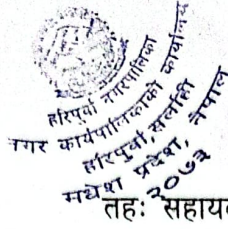 हरिपुर्वा नगरपालिका
नगर कार्यपालिकाको कार्यालय
हरिपुर्वा, सर्लाही
मधेश प्रदेश, नेपाल
२०७३
तहः सहायक